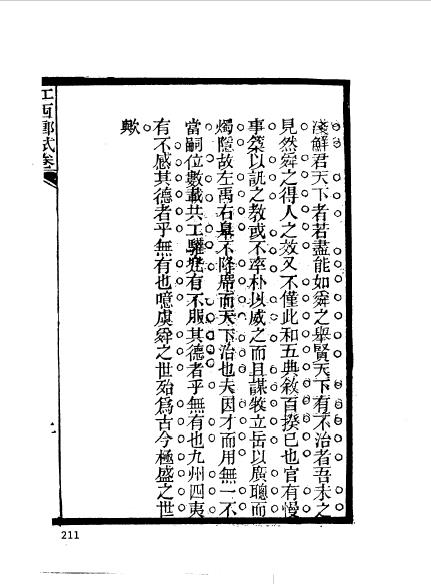 淺鮮君天下者若盡能如舜之舉賢天下有不治者吾未之
見然舜之得人之效又不僅此和五典敘百揆已也官有慢
事簗以訊之教或不率朴以威之而且謀牧立岳以廣聰而
燭隱故左禹右臯不降席而天下治也夫因才而用無一不
當嗣位數載共工驩兠有不服其德者乎無有也九州四夷
有不感其德者乎無有也噫虞舜之世殆爲古今極盛之世
歟
江西鄉試卷
211